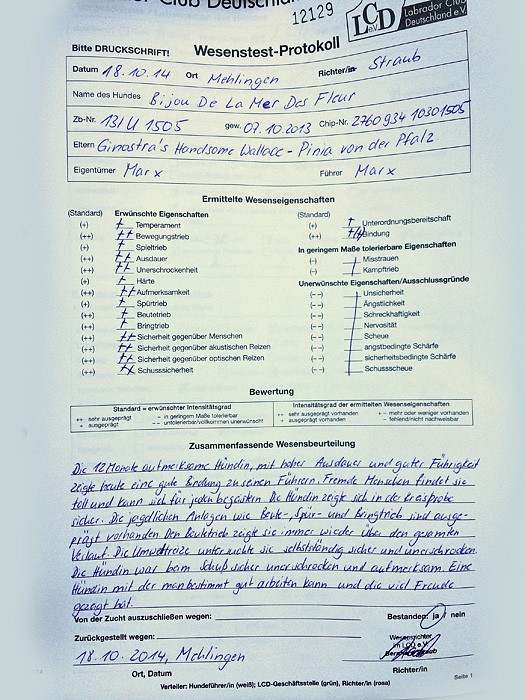 Club Deutschland
12129
LCD
Labrador Club
Deutschland e.V.
Bitte DRUCKSCHRIFT!
Wesenstest-Protokoll
Datum 18.10.14 Ort Mehlingen Richter/in Straub
Name des Hundes Bijou De La Mer Des Fleur
Zb-Nr. 131U 1505 gew. 07.10.2013 Chip-Nr. 2760934 10301505
Eltern Ginastra's Handsome Wallace - Pinia von der Pfalz
Eigentümer Marx Führer Marx
Ermittelte Wesenseigenschaften
(Standard) Erwünschte Eigenschaften
(+) + Temperament
(++) ++ Bewegungstrieb
(+) + Spieltrieb
(++) ++ Ausdauer
(++) ++ Unerschrockenheit
(+) + Härte
(++) ++ Aufmerksamkeit
(+) + Spürtrieb
(++) + Beutetrieb
(++) + Bringtrieb
(++) ++ Sicherheit gegenüber Menschen
(++) ++ Sicherheit gegenüber akustischen Reizen
(++) ++ Sicherheit gegenüber optischen Reizen
(++) Schusssicherheit
(Standard)
(+) + Unterordnungsbereitschaft
(++) Bindung
In geringem Maße tolerierbare Eigenschaften
(-) Misstrauen
(-) Kampftrieb
Unerwünschte Eigenschaften/Ausschlussgründe
(--) Unsicherheit
(--) Ängstlichkeit
(--) Schreckhaftigkeit
(--) Nervosität
(--) Scheue
(--) angstbedingte Schärfe
(--) sicherheitsbedingte Schärfe
(--) Schussscheue
Bewertung
Standard = erwünschter Intensitätsgrad
++ sehr ausgeprägt - in geringem Maße tolerierbar
+ ausgeprägt -- untolerierbar/vollkommen unerwünscht
Intensitätsgrad der ermittelten Wesenseigenschaften
++ sehr ausgeprägt vorhanden +- mehr oder weniger vorhanden
+ ausgeprägt vorhanden - fehlend/nicht nachweisbar
Zusammenfassende Wesensbeurteilung
Die 12 Monate aufmerksame Hündin, mit hoher Ausdauer und guter Führigkeit
zeigte heute eine gute Bindung zu seinen Führern. Fremde Menschen findet sie
toll und kann sich für jeden begeistern. Die Hündin zeigte sich in der Kreisprobe
sicher. Die jagdlichen Anlagen wie Beute-, Spür- und Bringtrieb sind ausge-
prägt vorhanden. Den Beutetrieb zeigte sie immer wieder über den gesamten
Verlauf. Die Umweltreize untersuchte sie selbstständig sicher und unerschrocken.
Die Hündin war beim Schuß sicher unerschrocken und aufmerksam. Eine
Hündin mit der man bestimmt gut arbeiten kann und die viel Freude
gezeigt hat.
Von der Zucht auszuschließen wegen: Bestanden: ja / nein
Zurückgestellt wegen:
Wesensrichter
im LCD e.V.
18.10.2014, Mehlingen
Ort, Datum Richter/in
Seite 1
Verteiler: Hundeführer/in (weiß); LCD-Geschäftsstelle (grün), Richter/in (rosa)